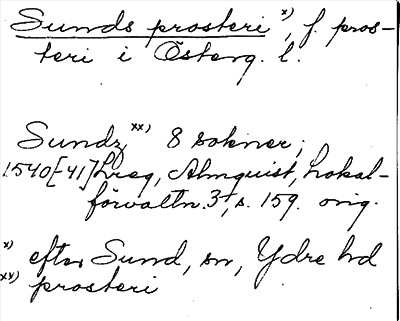 Sunds prosteri x), f. pros-
teri i Österg. l.
Sundz xx) 8 sokner;
1540[41] Lreg, Almquist, Lokal-
förvaltn. 3+, s. 159. orig.
x) efter Sund, sn, Ydre hd
xx) prosteri